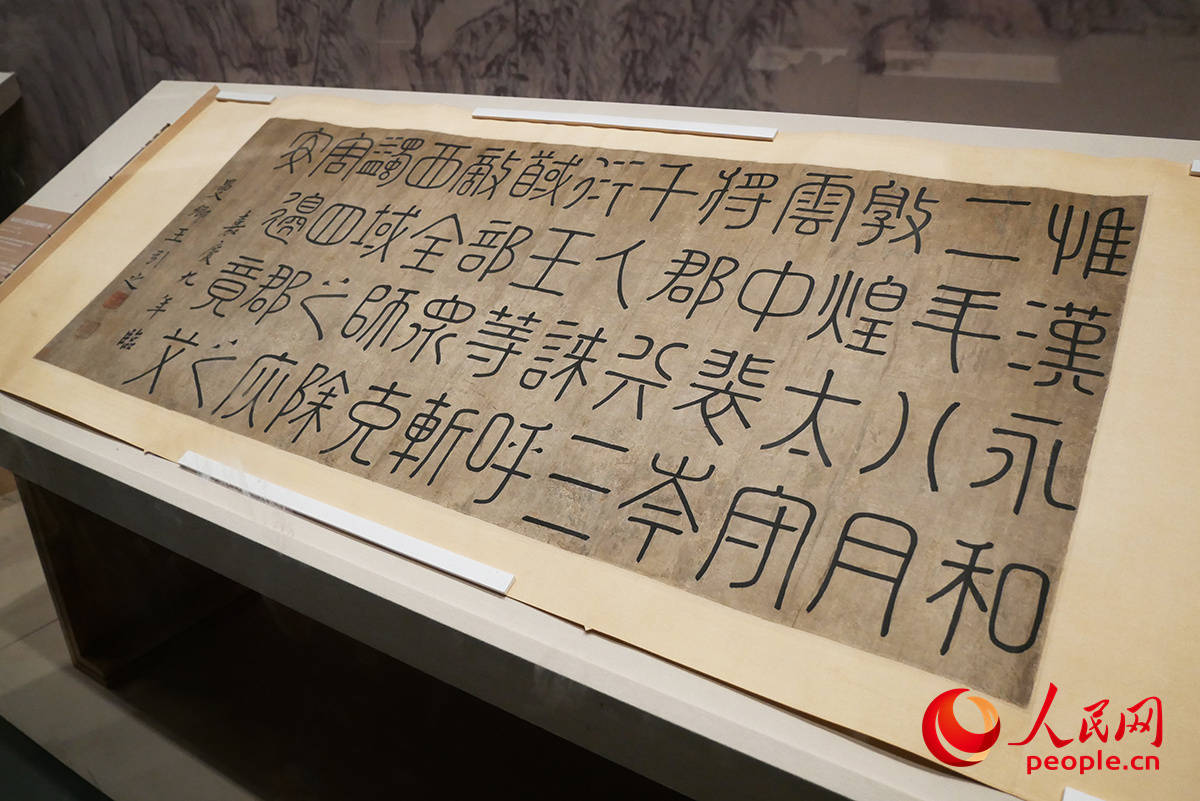 惟漢永和
二年八月
敦煌太守
雲中裴岑
將郡兵三
千人誅呼
衍王等斬
馘部眾克
敵全師除
西域之疢
蠲四郡之
害邊竟艾
安
嘉慶九年臨
曼卿王引之
人民网
people.cn